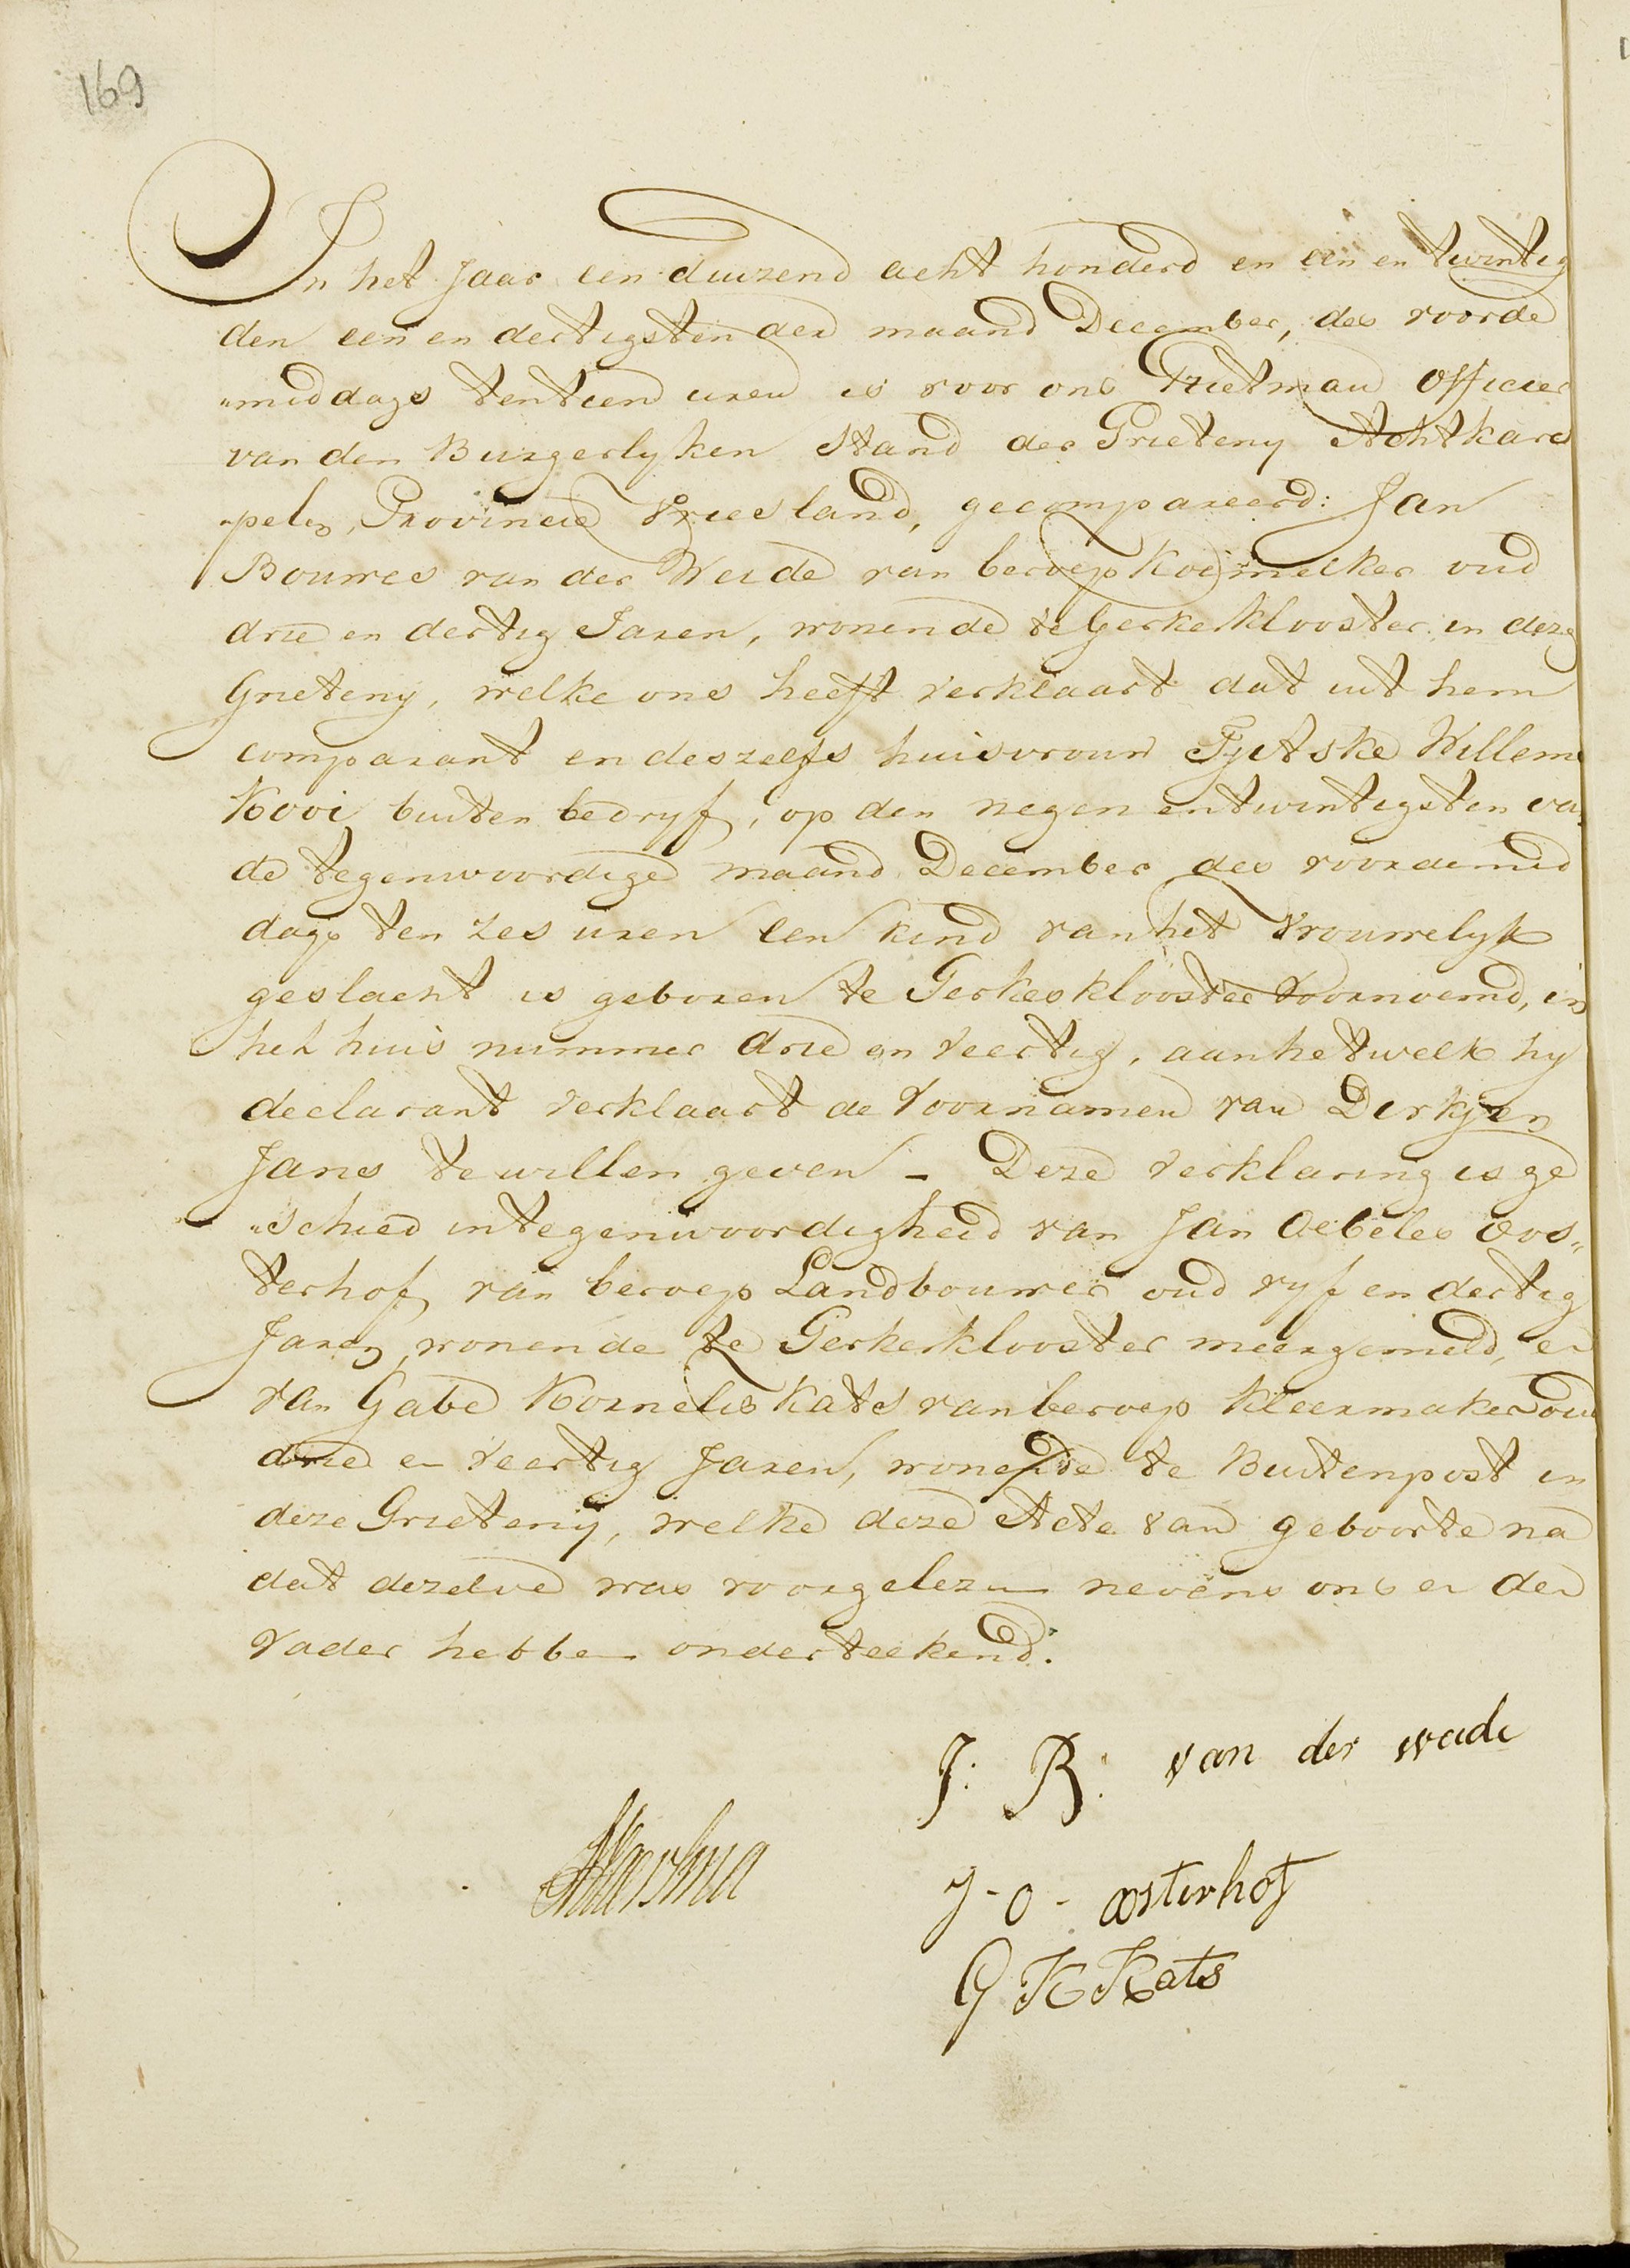 169
In het Jaar een duizend acht honderd en een en twintig
den een en dertigsten der maand December, des voorde
"middags ten tien uren is voor ons Grietman Officier
van den Burgerlyken Stand der Grieteny Achtkars
"pelen, Provincie Vriesland, gecompareerd: Jan
Bouwes van der Weide van beroep Koemelker oud
drie en dertig Jaren, wonende te Gerkesklooster in deze
Grieteny, welke ons heeft verklaart dat uit hem
comparant en deszelfs huisvrouw Tjetske Willems
Kooi buiten bedryf, op den negen en twintigsten va
de tegenwoordige maand December des voordemid
dags ten zes uren een kind van het Vrouwelyk
geslacht is geboren te Gerkesklooster voornoemd, in
het huis nummer drie en veertig, aan hetwelk hy
declarant verklaart de voornamen van Derkjen
Jans te willen geven - Deze verklaring is ge
"schied in tegenwoordigheid van Jan Oebeles Oos"
terhof, van beroep Landbouwer oud vyf en dertig
Jaren, wonende te Gerkesklooster meergemeld, en
van Gabe Kornelis Kats van beroep Kleermaker oud
drie en veertig Jaren, wonende te Buitenpost in
deze Grieteny, welke deze Acte van geboorte na
dat dezelve was voorgelezen nevens ons en den
Vader hebben onderteekend.
J: B: van der weide
J - O - oosterhof
G K Kats